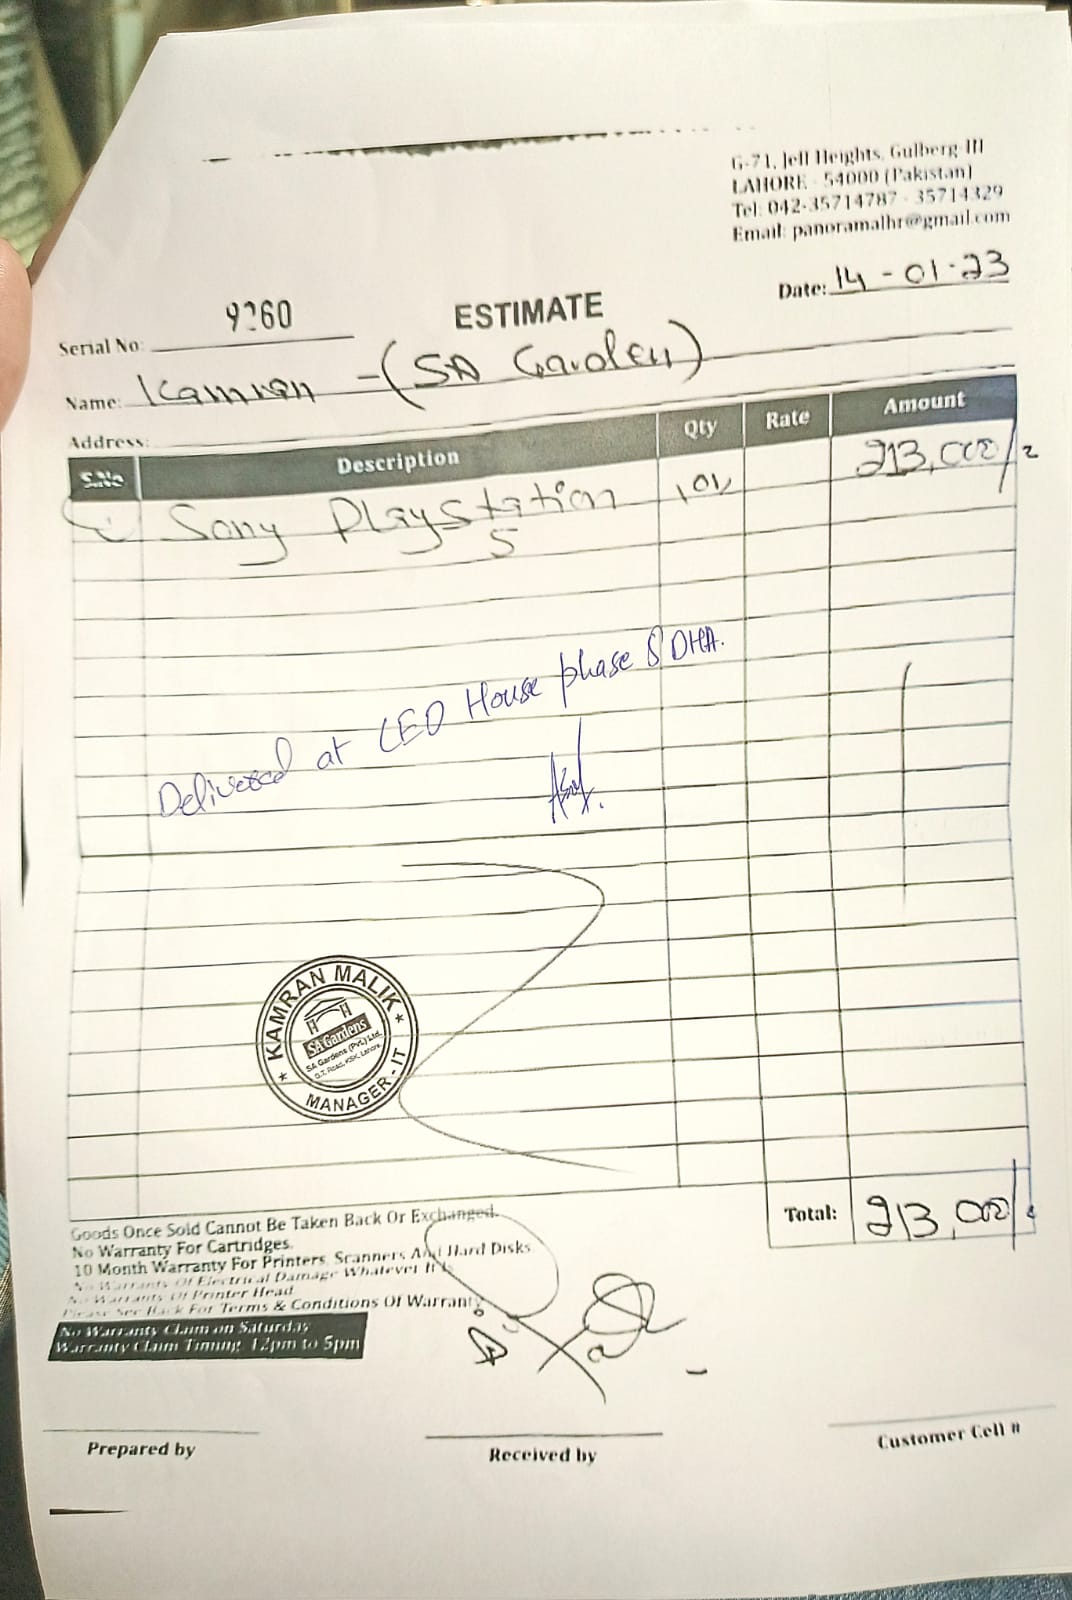 G-71, Jeff Heights, Gulberg-III
LAHORE - 54000 (Pakistan)
Tel: 042-35714787 - 35714329
Email: panoramalhr@gmail.com
Date: 14-01-23
ESTIMATE
Serial No: 9260
Name: Kamran - (SA Garden)
Address:
S.No Description Qty Rate Amount
Sony PlayStation 5 01 213,000/
Delivered at CEO House phase 8 DHA.
KAMRAN MALIK
SA Gardens
SA Gardens (Pvt.) Ltd.
G.T. Road, KSK, Lahore.
MANAGER - IT
Total: 213,000/
Goods Once Sold Cannot Be Taken Back Or Exchanged.
No Warranty For Cartridges.
10 Month Warranty For Printers, Scanners And Hard Disks
No Warranty Of Electrical Damage Whatever It Is
No Warranty Of Printer Head
Please See Back For Terms & Conditions Of Warranty
No Warranty Claim on Saturday
Warranty Claim Timing 12pm to 5pm
Prepared by
Received by
Customer Cell #